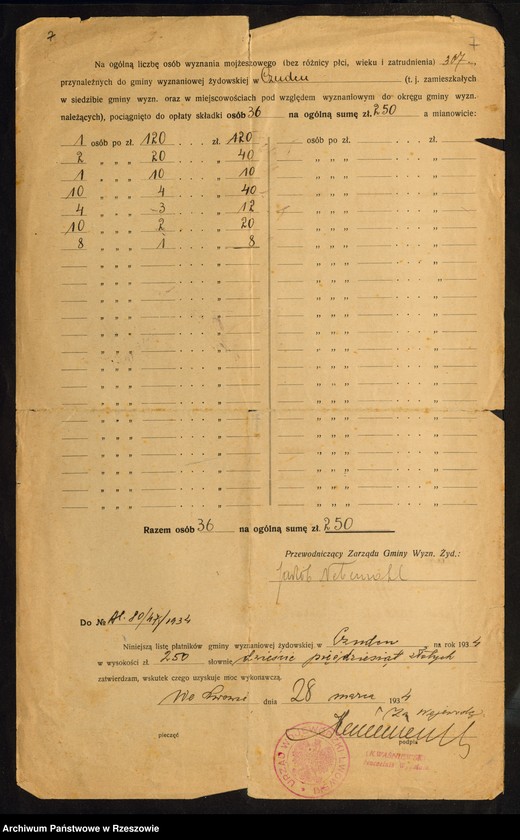 7
7
Na ogólną liczbę osób wyznania mojżeszowego (bez różnicy płci, wieku i zatrudnienia) 307
przynależnych do gminy wyznaniowej żydowskiej w Czudcu (t. j. zamieszkałych
w siedzibie gminy wyzn. oraz w miejscowościach pod względem wyznaniowym do okręgu gminy wyzn.
należących), pociągnięto do opłaty składki osób 36 na ogólną sumę zł. 250 a mianowicie:
1 osób po zł. 120 . . . zł. 120 osób po zł. . . . zł.
2 „ „ „ 20 . . . „ 40 „ „ „ . . . „
1 „ „ „ 10 . . . „ 10 „ „ „ . . . „
10 „ „ „ 4 . . . „ 40 „ „ „ . . . „
4 „ „ „ 3 . . . „ 12 „ „ „ . . . „
10 „ „ „ 2 . . . „ 20 „ „ „ . . . „
8 „ „ „ 1 . . . „ 8 „ „ „ . . . „
Razem osób 36 na ogólną sumę zł. 250
Przewodniczący Zarządu Gminy Wyzn. Żyd.:
Jakób
Do № Al. 80/47/1934
Niniejszą listę płatników gminy wyznaniowej żydowskiej w Czudcu na rok 1934
w wysokości zł. 250 słownie dwieście pięćdziesiąt złotych
zatwierdzam, wskutek czego uzyskuje moc wykonawczą.
We Lwowie dnia 28 marca 1934
Za Wojewodę
pieczęć
podpis
URZĄD WOJEWÓDZKI LWOWSKI
Archiwum Państwowe w Rzeszowie